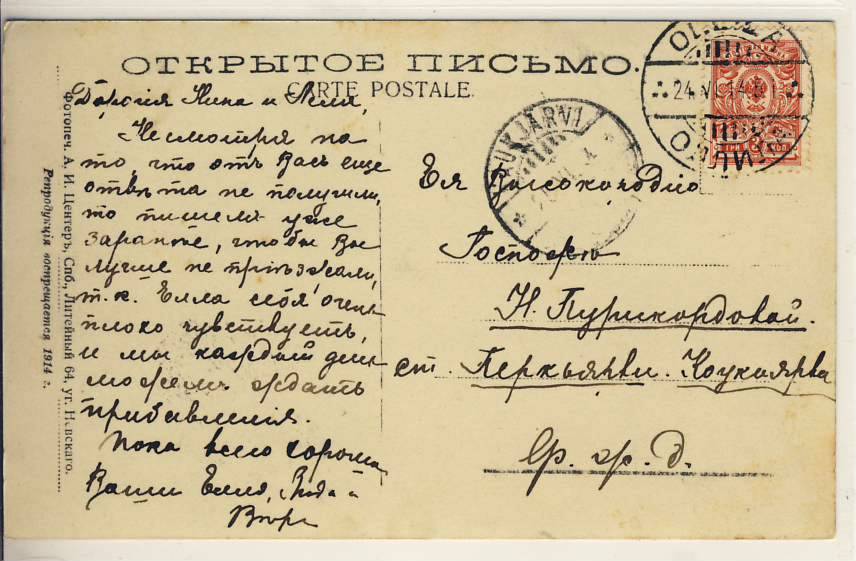 ОТКРЫТОЕ ПИСЬМО.
CARTE POSTALE.
Дорогія Нина и Леля,
Несмотря на
то, что отъ Васъ еще
отвѣта не получили,
то пишемъ уже
заранѣе, чтобы Вы
лучше не пріѣзжали,
т.к. Елла себя очень
плохо чувствуетъ,
и мы каждый день
можемъ ждать
прибавленія.
Пока всего хорошаго
Ваши Елла, и
Ея Высокородію
Госпожѣ
Н. Пурикордовой.
ст. Перкьярви. Коукъярви
Ф. ж. д.
24 VI 14
ОЛЛИЛА
ТРИ 3 КОП
Фотопеч. А. И. Центеръ, Спб., Литейный 64, уг. Невскаго.
Репродукція воспрещается 1914 г.